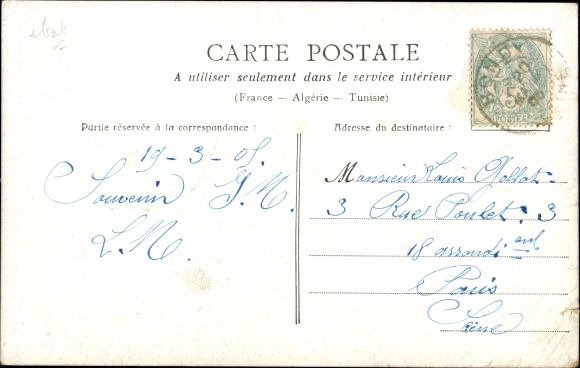 CARTE POSTALE
A utiliser seulement dans le service intérieur
(France — Algérie — Tunisie)
Partie réservée à la correspondance :
Adresse du destinataire :
19-3-05
Souvenir J. N.
L. N.
Monsieur Louis Gollot.
3 Rue Poulet. 3
18 arrondi
Paris
Seine
5
POSTES